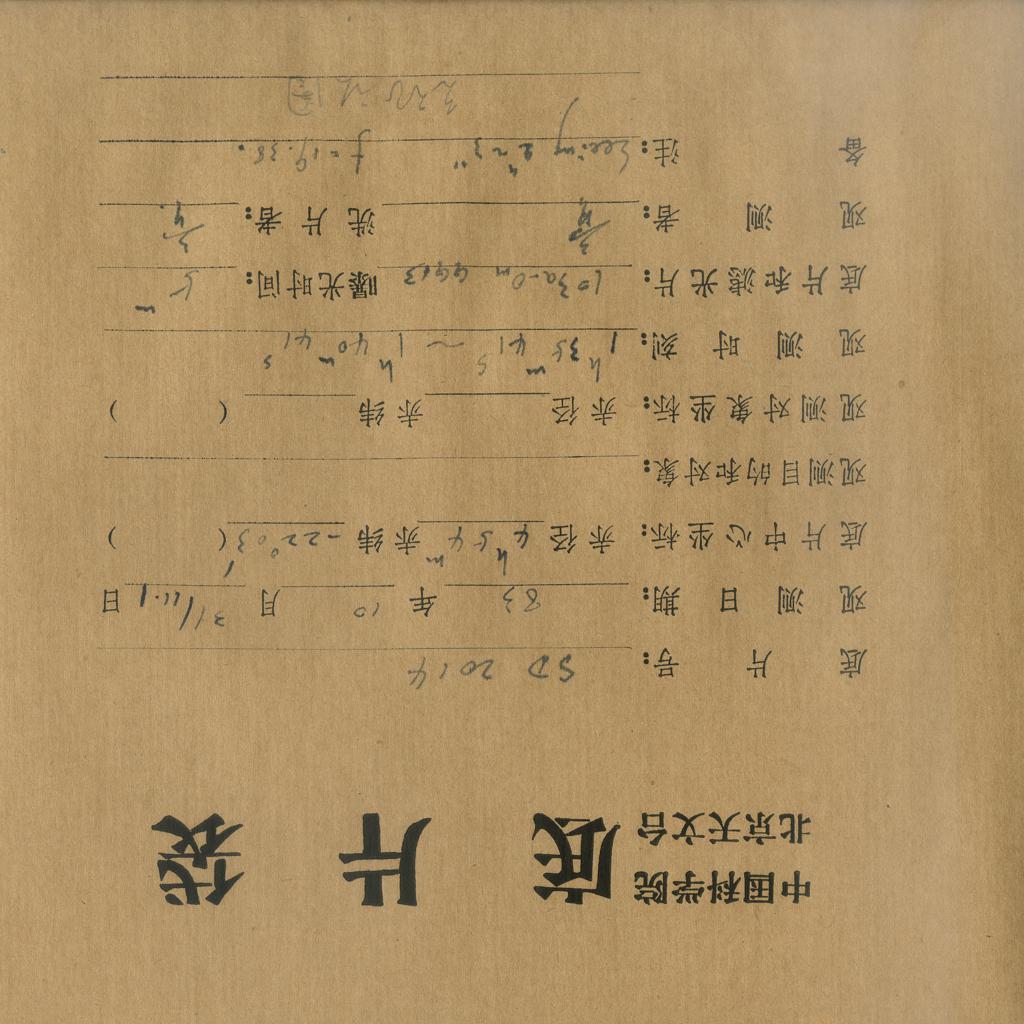 中国科学院
北京天文台
底片袋
底片号: SD 2014
观测日期: 83 年 10 月 31/11.1 日
底片中心坐标: 赤径 4h 54m 赤纬 -22°03′ ( )
观测目的和对象:
观测对象坐标: 赤径 赤纬 ( )
观测时刻: 1h 35m 41s ~ 1h 40m 41s
底片和滤光片: 103a-O m 4413 曝光时间: 5m
观测者: 洗片者:
备注: Seeing 2"~3" f=19.38.